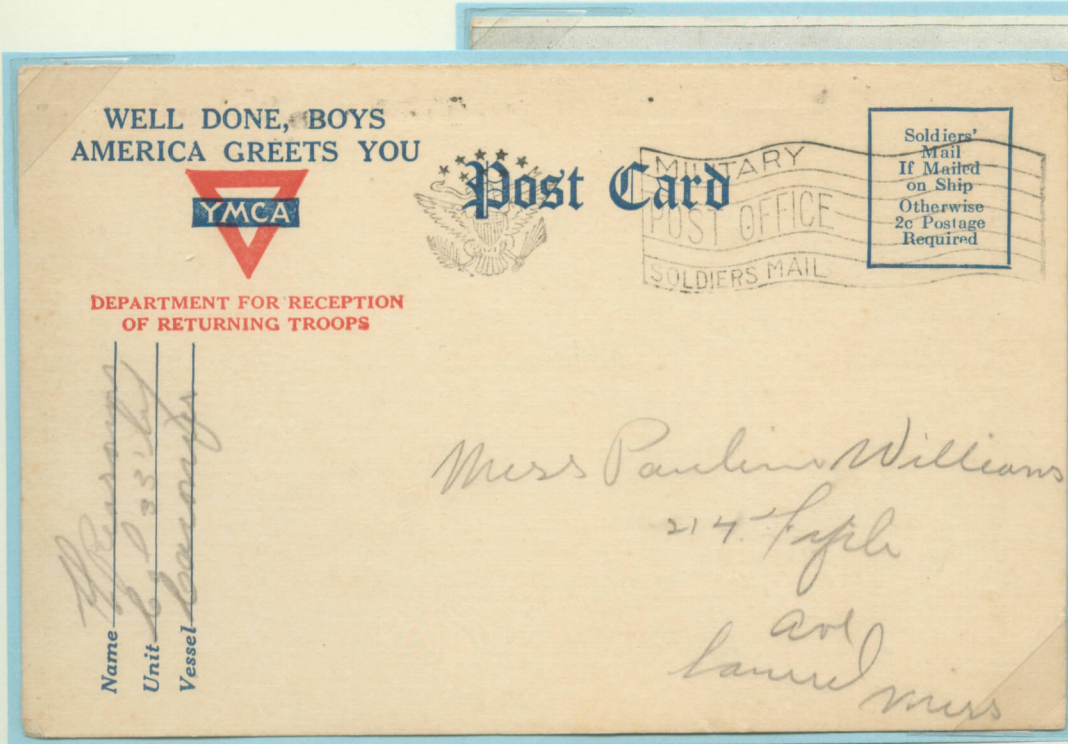 WELL DONE, BOYS
AMERICA GREETS YOU
YMCA
DEPARTMENT FOR RECEPTION
OF RETURNING TROOPS
Post Card
MILITARY
POST OFFICE
SOLDIERS MAIL
Soldiers'
Mail
If Mailed
on Ship
Otherwise
2c Postage
Required
Name
Unit
Vessel
Miss Pauline Williams
214
Ave
Laurel Miss